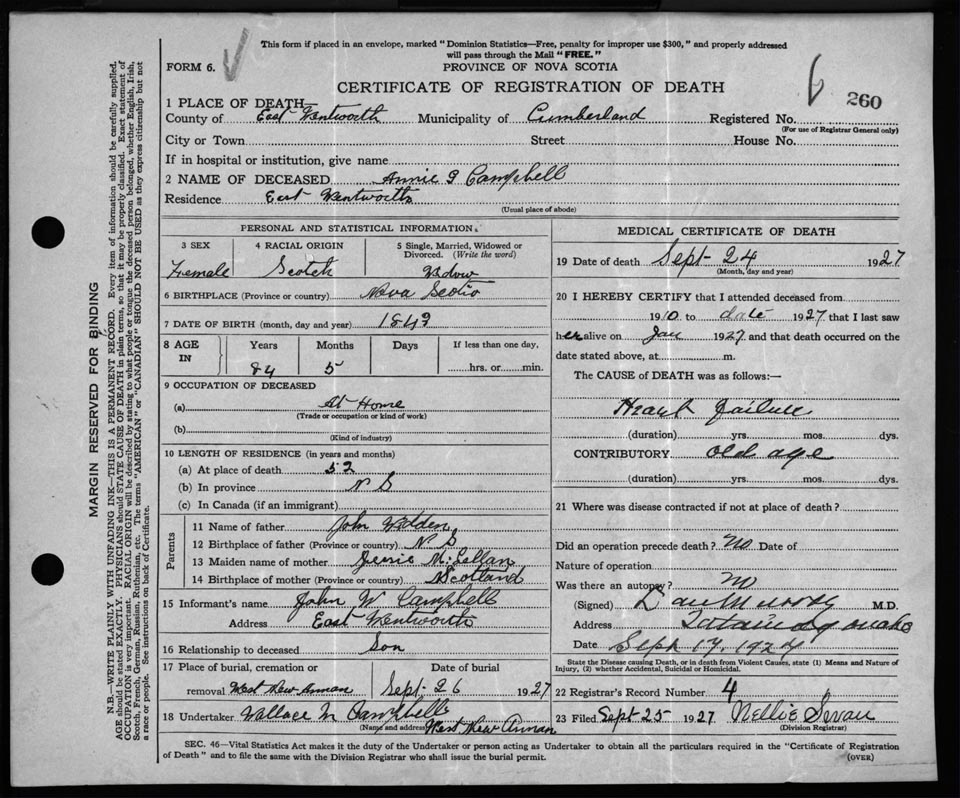 This form if placed in an envelope, marked "Dominion Statistics—Free, penalty for improper use $300," and properly addressed
will pass through the Mail "FREE."
FORM 6.
PROVINCE OF NOVA SCOTIA
CERTIFICATE OF REGISTRATION OF DEATH
260
1 PLACE OF DEATH—
County of East Wentworth Municipality of Cumberland Registered No.
(For use of Registrar General only)
City or Town Street House No.
If in hospital or institution, give name
2 NAME OF DECEASED Annie J Campbell
Residence East Wentworth
(Usual place of abode)
PERSONAL AND STATISTICAL INFORMATION
3 SEX 4 RACIAL ORIGIN 5 Single, Married, Widowed or
Divorced. (Write the word)
Female Scotch Widow
6 BIRTHPLACE (Province or country) Nova Scotia
7 DATE OF BIRTH (month, day and year) 1843
8 AGE IN Years Months Days If less than one day,
84 5 hrs. or min.
9 OCCUPATION OF DECEASED
(a) At Home
(Trade or occupation or kind of work)
(b)
(Kind of industry)
10 LENGTH OF RESIDENCE (in years and months)
(a) At place of death 52
(b) In province N S
(c) In Canada (if an immigrant)
Parents
11 Name of father John
12 Birthplace of father (Province or country) N. S
13 Maiden name of mother McLellan
14 Birthplace of mother (Province or country) Scotland
15 Informant's name John W Campbell
Address East Wentworth
16 Relationship to deceased Son
17 Place of burial, cremation or Date of burial
removal West New Annan Sept. 26 1927
18 Undertaker Wallace M Campbell
(Name and address) West New Annan
MEDICAL CERTIFICATE OF DEATH
19 Date of death Sept- 24 1927
(Month, day and year)
20 I HEREBY CERTIFY that I attended deceased from
1910 to date 1927 that I last saw
her alive on Jan 1927 and that death occurred on the
date stated above, at m.
The CAUSE of DEATH was as follows:—
Heart failure
(duration) yrs. mos. dys.
CONTRIBUTORY old age
(duration) yrs. mos. dys.
21 Where was disease contracted if not at place of death?
Did an operation precede death? No Date of
Nature of operation
Was there an autopsy? No
(Signed) M.D.
Address Tatamagouche
Date Sept 17, 1927
State the Disease causing Death, or in death from Violent Causes, state (1) Means and Nature of
Injury, (2) whether Accidental, Suicidal or Homicidal.
22 Registrar's Record Number 4
23 Filed Sept 25 1927 Nellie Swan
(Division Registrar)
SEC. 46—Vital Statistics Act makes it the duty of the Undertaker or person acting as Undertaker to obtain all the particulars required in the "Certificate of Registration
of Death" and to file the same with the Division Registrar who shall issue the burial permit.
(OVER)
MARGIN RESERVED FOR BINDING
N.B.—WRITE PLAINLY WITH UNFADING INK—THIS IS A PERMANENT RECORD. Every item of information should be carefully supplied.
AGE should be stated EXACTLY. PHYSICIANS should STATE CAUSE OF DEATH in plain terms, so that it may be properly classified. Exact statement of
OCCUPATION is very important. RACIAL ORIGIN will be described by stating to what people or tongue the deceased person belonged, whether English, Irish,
Scotch, French, German, Russian, Ruthenian, etc. The terms "AMERICAN" or "CANADIAN" SHOULD NOT BE USED as they express citizenship but not
a race or people. See instructions on back of Certificate.